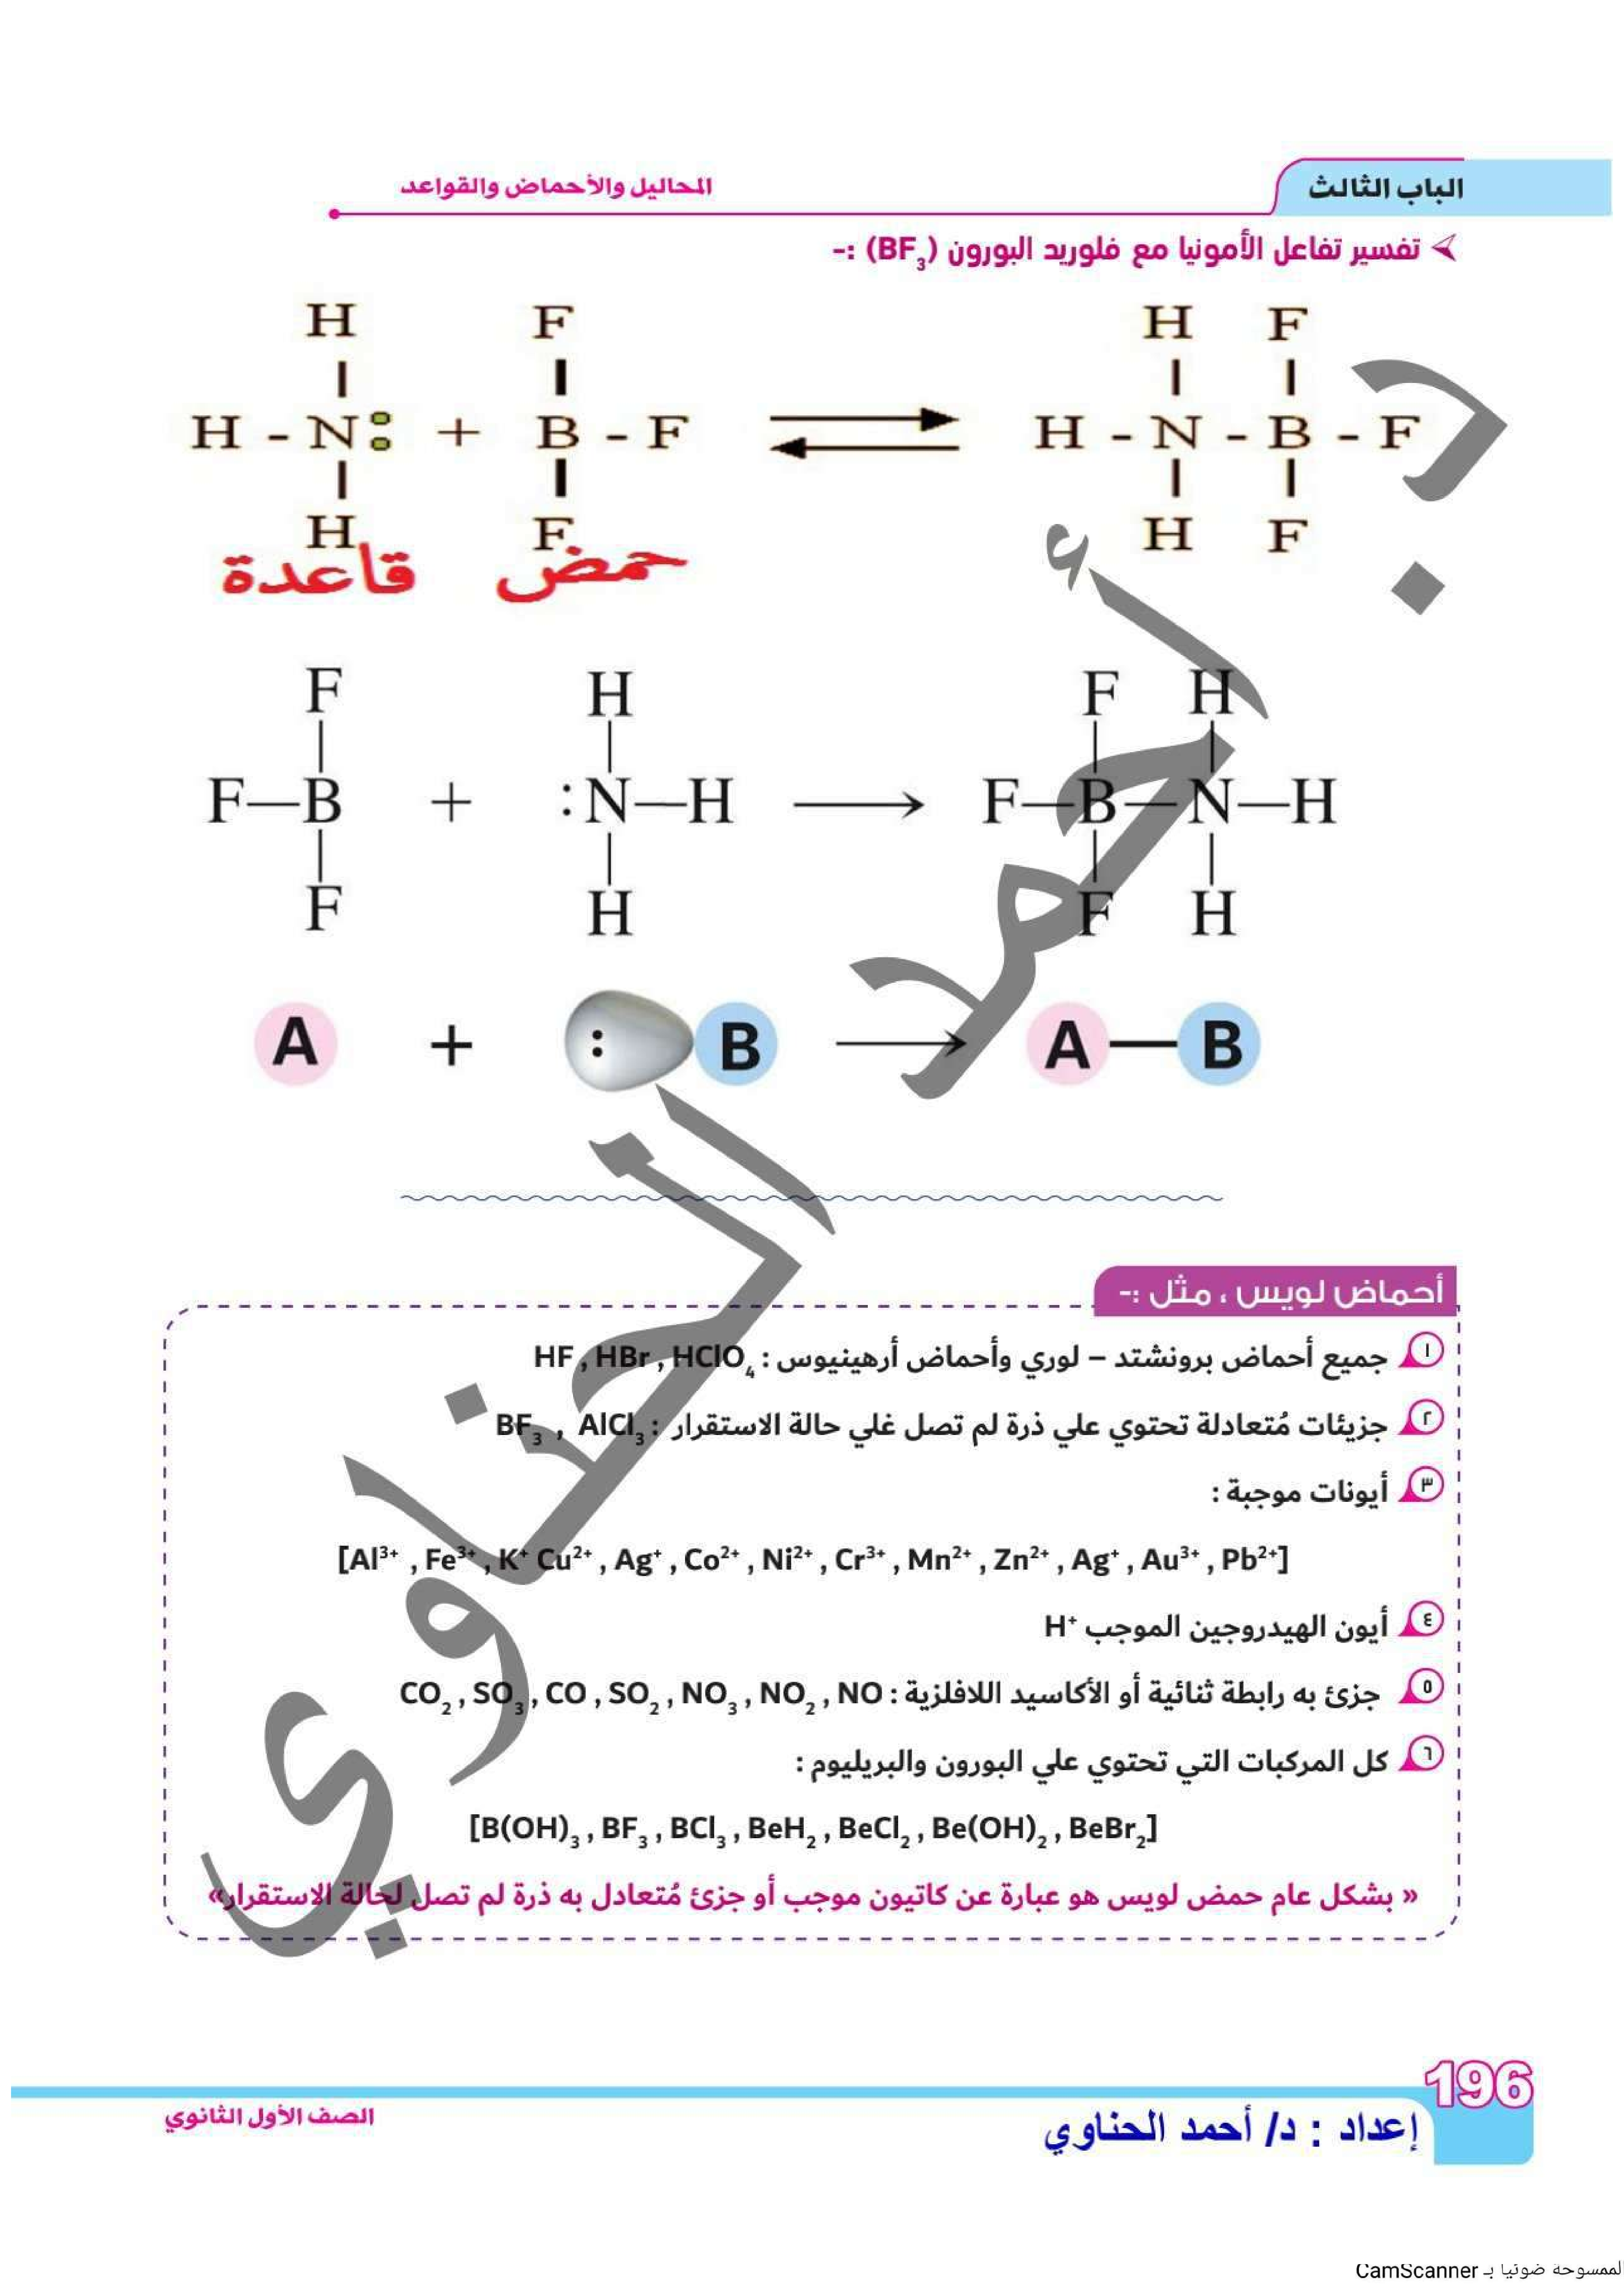 الباب الثالث
المحاليل والأحماض والقواعد
تفسير تفاعل الأمونيا مع فلوريد البورون (BF₃) :-
H F H F
H - N : + B - F ⇌ H - N - B - F
H F H F
قاعدة حمض
F H F H
F—B + :N—H ⟶ F—B—N—H
F H F H
A + : B ⟶ A—B
أحماض لويس ، مثل :-
١ جميع أحماض برونشتد – لوري وأحماض أرهينيوس : HF , HBr , HClO₄
٢ جزيئات مُتعادلة تحتوي علي ذرة لم تصل غلي حالة الاستقرار : BF₃ , AlCl₃
٣ أيونات موجبة :
[Al³⁺ , Fe³⁺ , K⁺ Cu²⁺ , Ag⁺ , Co²⁺ , Ni²⁺ , Cr³⁺ , Mn²⁺ , Zn²⁺ , Ag⁺ , Au³⁺ , Pb²⁺]
٤ أيون الهيدروجين الموجب H⁺
٥ جزئ به رابطة ثنائية أو الأكاسيد اللافلزية : CO₂ , SO₃ , CO , SO₂ , NO₃ , NO₂ , NO
٦ كل المركبات التي تحتوي علي البورون والبريليوم :
[B(OH)₃ , BF₃ , BCl₃ , BeH₂ , BeCl₂ , Be(OH)₂ , BeBr₂]
« بشكل عام حمض لويس هو عبارة عن كاتيون موجب أو جزئ مُتعادل به ذرة لم تصل لحالة الاستقرار»
د. أحمد الحناوي
196
إعداد : د/ أحمد الحناوي
الصف الأول الثانوي
لممسوحة ضوئيا بـ CamScanner